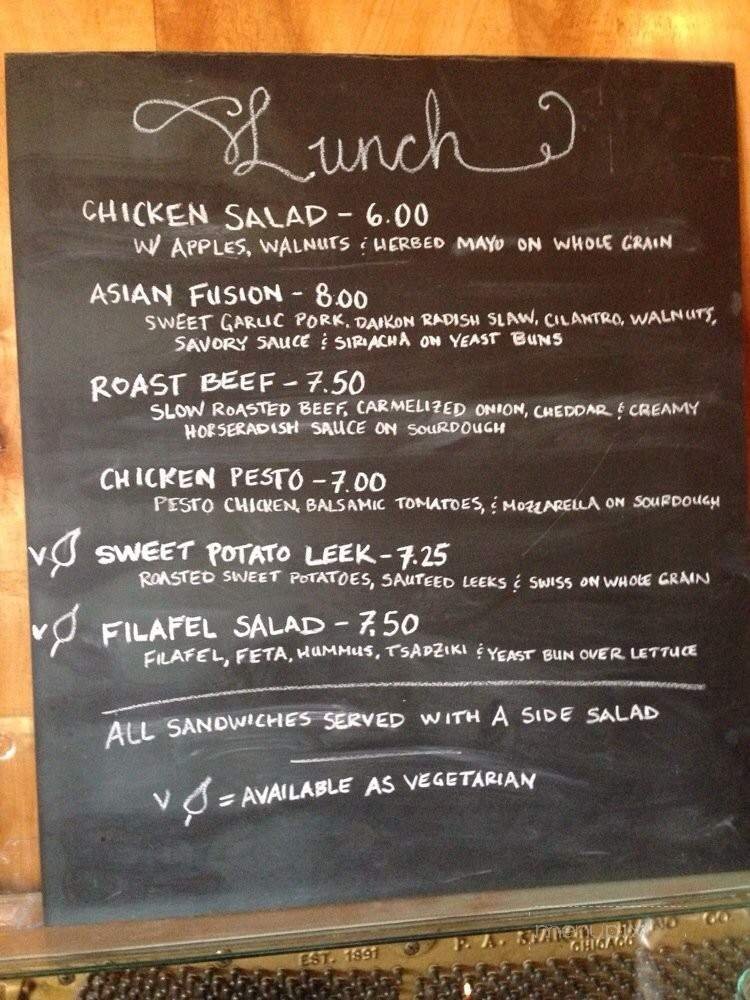 Lunch
CHICKEN SALAD - 6.00
W/ APPLES, WALNUTS & HERBED MAYO ON WHOLE GRAIN
ASIAN FUSION - 8.00
SWEET GARLIC PORK, DAIKON RADISH SLAW, CILANTRO, WALNUTS,
SAVORY SAUCE & SIRIACHA ON YEAST BUNS
ROAST BEEF - 7.50
SLOW ROASTED BEEF, CARMELIZED ONION, CHEDDAR & CREAMY
HORSERADISH SAUCE ON SOURDOUGH
CHICKEN PESTO - 7.00
PESTO CHICKEN, BALSAMIC TOMATOES, & MOZZARELLA ON SOURDOUGH
V SWEET POTATO LEEK - 7.25
ROASTED SWEET POTATOES, SAUTEED LEEKS & SWISS ON WHOLE GRAIN
V FILAFEL SALAD - 7.50
FILAFEL, FETA, HUMMUS, TSADZIKI & YEAST BUN OVER LETTUCE
ALL SANDWICHES SERVED WITH A SIDE SALAD
V = AVAILABLE AS VEGETARIAN
menupix
EST. 1891
P. A. STARCK PIANO CO.
CHICAGO